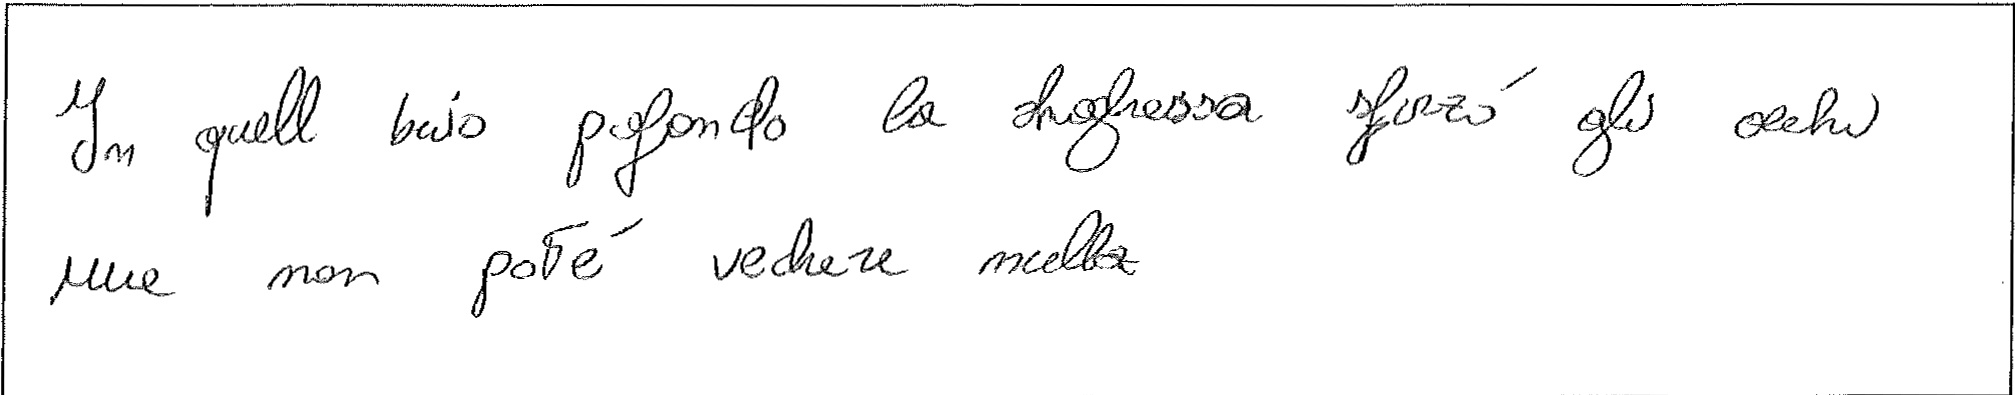 In quell buio pofondo la draghessa sforzó gli occhi
ma non poté vedere nulla